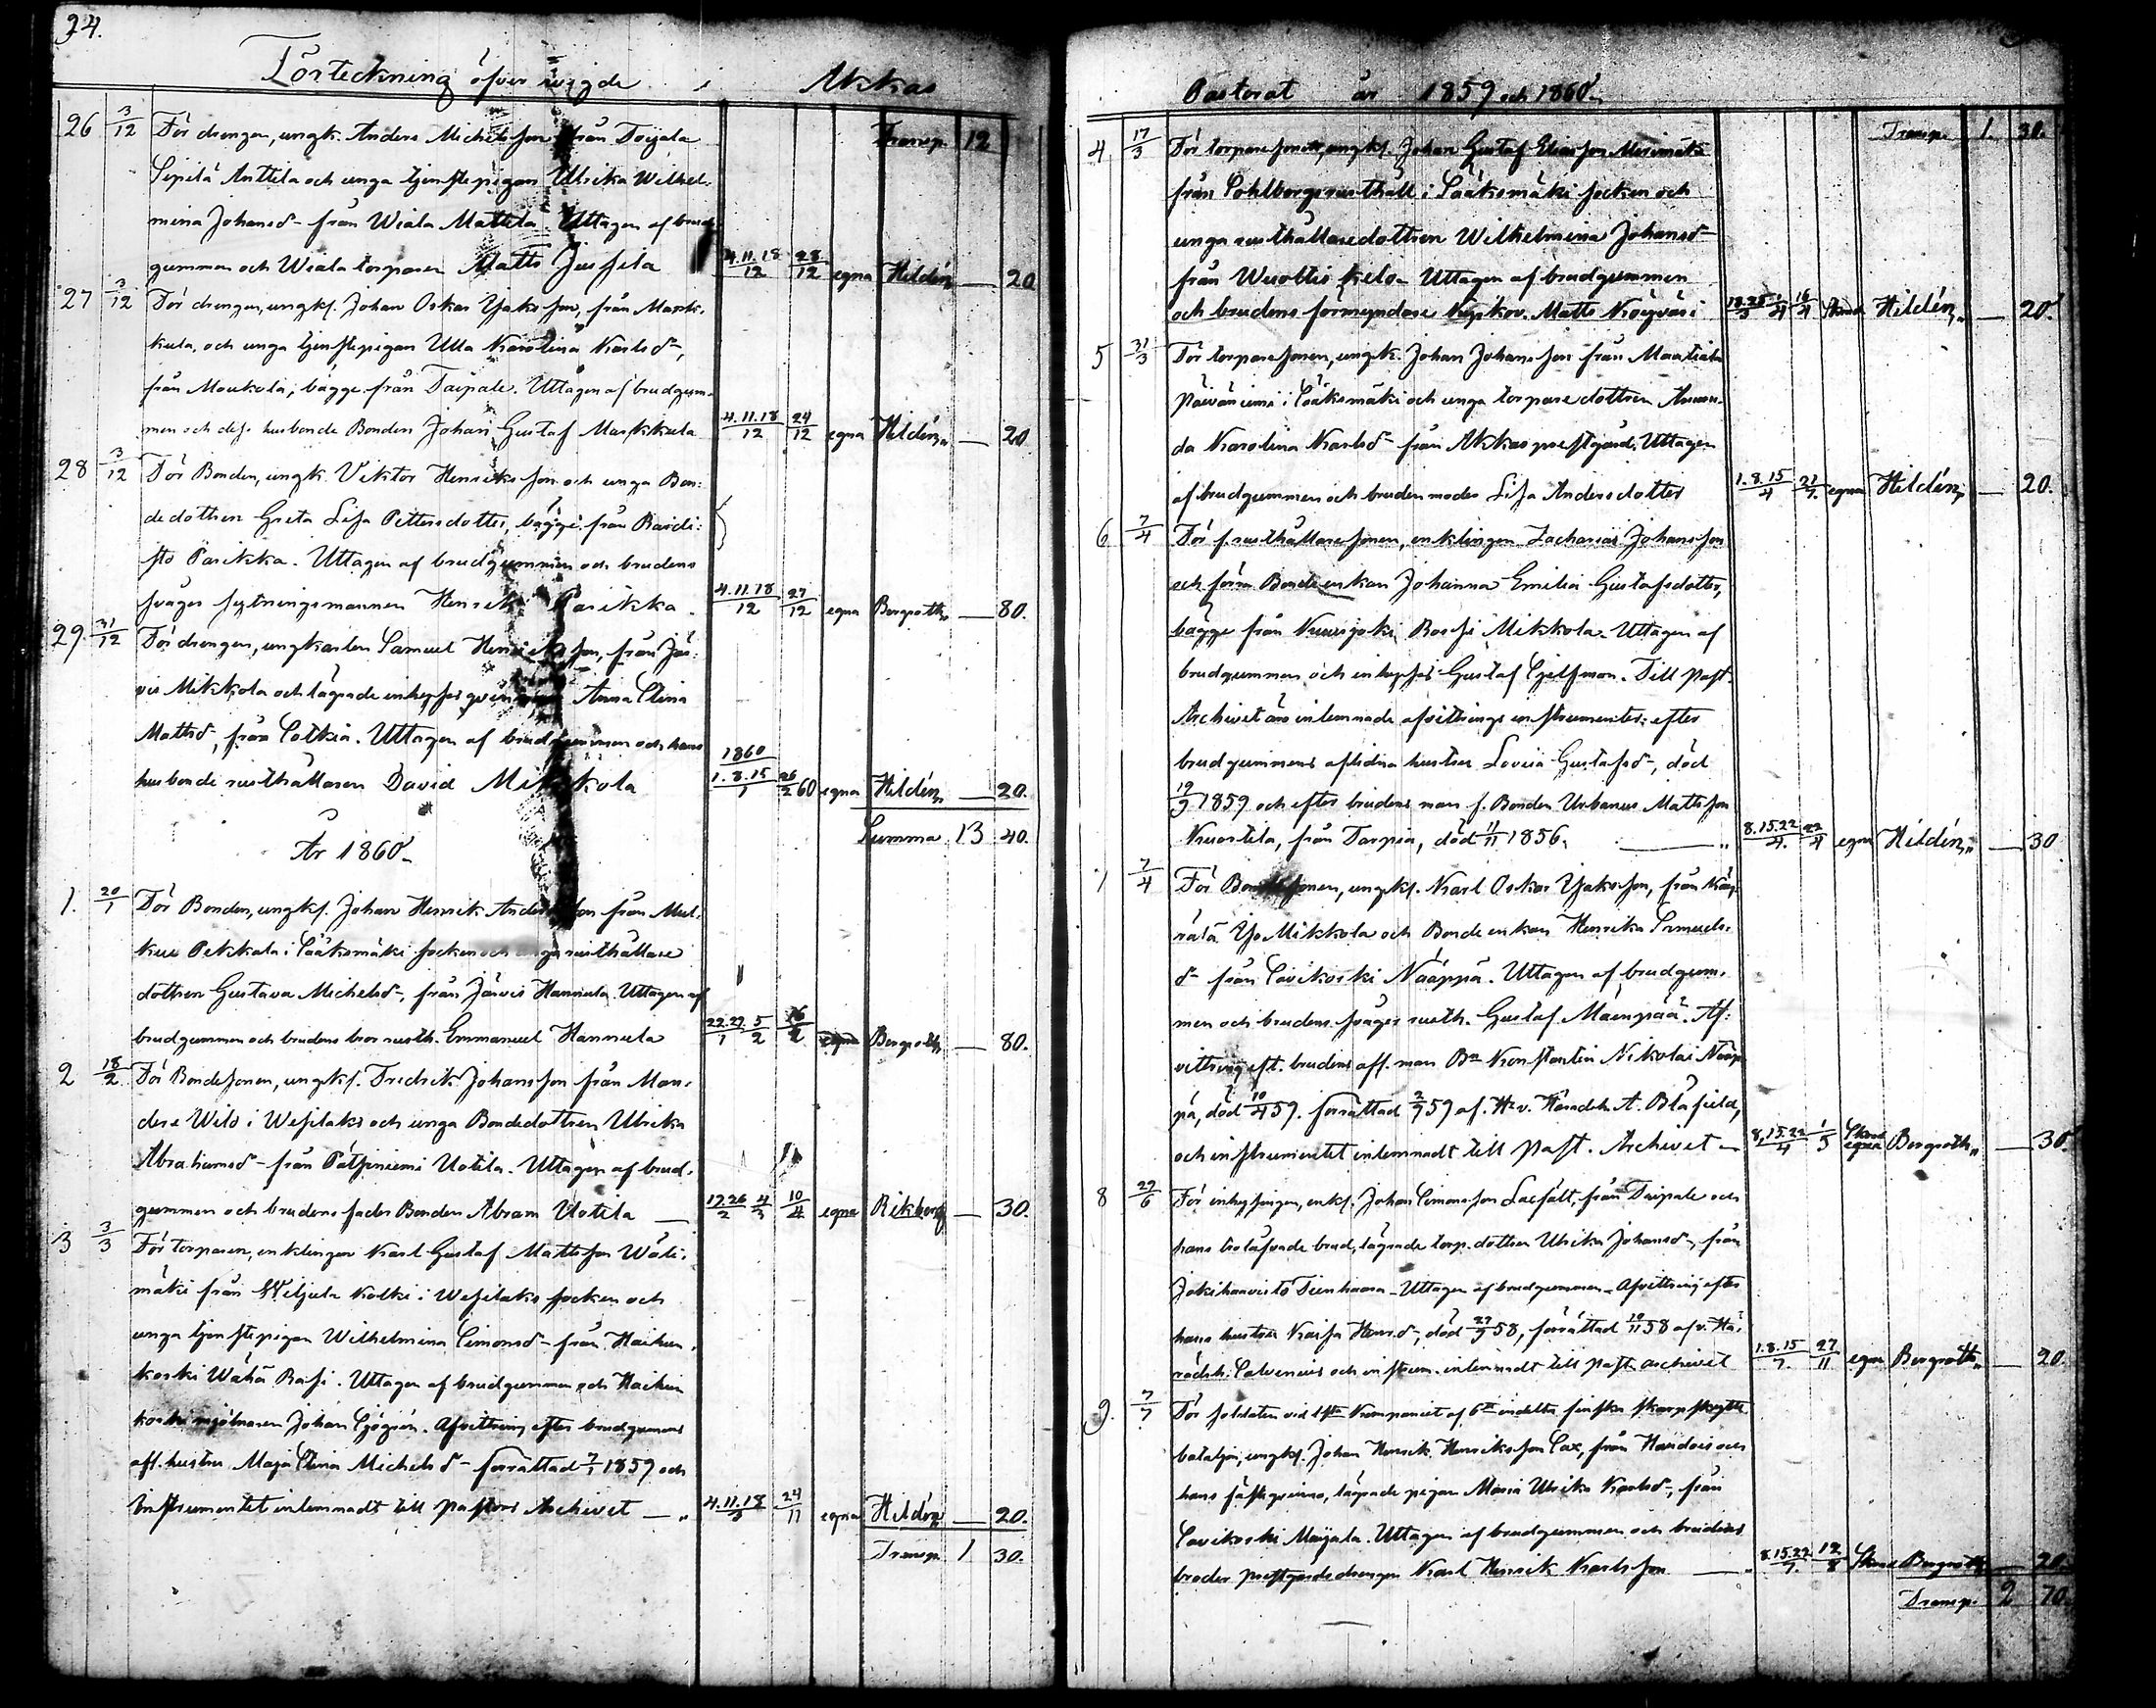 34.
Förteckning öfver vigde i Akkas
Transp. 12
26 3/12 För drengen, ungk. Anders Michelsson från Toijala
Sipilä Anttila och unga tjenstepigan Ulrika Wilhel-
mina Johansd- från Wiala Mattila. Uttagen af brud-
gummen och Wiala torparen Matts Jusfila 4.11.18/12 28/12 egna Hildén — 20
27 3/12 För drengen, ungk. Johan Oskar Jaksson, från Mark-
kula, och unga tjenstepigan Ulla Karolina Karlsd-,
från Moukola, bägge från Taipale. Uttagen af brudgum-
men och dess husbonde Bonden Johan Gustaf Markkula 4.11.18/12 24/12 egna Hildén — 20
28 3/12 För Bonden, ungk. Viktor Henriksson och unga Bon-
dedottren Greta Lisa Pettersdotter, bägge från
Parikka. Uttagen af brudgummen och brudens
svåger sytningsmannen Henrik Parikka. 4.11.18/12 27/12 egna Bergroth — 80.
29. 31/12 För drengen, ungkarlen Samuel Henriksson, från Jär-
vis Mikkola och lägrade Anna Stina
Mattsd-, från Sotkia. Uttagen af brudgummen och hans
husbonde rusthållaren David Mikkola 1860 1.8.15/1 26/2 60 egna Hildén — 20.
Summa 13 40.
År 1860.
1. 20/1 För Bonden, ungk. Johan Henrik Andersson från Mul-
kus Pekkala i Sääksmäki socken och unga rusthållare
dottren Gustava Michelsd-, från Järvis Hannula. Uttagen af
brudgummen och brudens bror rusth. Emmanuel Hannula 22.29/1 5/2 26/2 egna Bergroth — 80.
2 18/2 För Bondesonen, ungk. Fredrik Johansson från
Wils i Wesilaks och unga Bondedottren Ulrika
Abrahamsd- från Pätsiniemi Uotila. Uttagen af brud-
gummen och brudens fader Bonden Abram Uotila — 19.26/2 4/3 10/4 egna Rikberg — 30.
3 3/3 För torparen, enklingen Karl Gustaf Mattsson Wäli-
mäki från Weljula Kolki i Wesilaks socken och
unga tjenstepigan Wilhelmina Simonsd- från Haihun-
koski Wähä Rasi. Uttagen af brudgummen och Haihun
koski mjölnaren Johan Sjögrén. Afvittring efter brudgummens
afl. hustru Maja Stina Michelsd- förrättad 7/1 1859 och
Instrumentet inlemnadt till pastors Archivet — 4.11.18/3 24/11 egna Hildén — 20.
Transp. 1 30.
Pastorat år 1859 och 1860.
Transp. 1. 30.
4 17/3 För torparesonen, ungk. Johan Gustaf Eliasson Merimäki
från Sohlbergs rusthåll i Sääksmäki socken och
unga rusthållaredottren Wilhelmina Johansd-
från Kelo. Uttagen af brudgummen
och brudens förmyndare Matts Knöyväri 18.25/3 1/4 16/4 Hildén — 20.
5 31/3 För torparesonen, ungk. Johan Johansson från
Päivänniemi i Sääksmäki och unga torparedottren Aman-
da Karolina Karlsd- från Akkas prestgård. Uttagen
af brudgummen och brudens moder Lisa Andersdotter 1.8.15/4 egna Hildén — 20.
6 7/4 För f. rusthållaresonen, enklingen Zacharias Johansson
och förra Bondeenkan Johanna Emilia Gustafsdotter,
bägge från Kurisjoki Rossi Mikkola. Uttagen af
brudgummen och inhyses Gustaf Hjelfman. Till past.
Archivet äro inlemnade afvittrings instrumenter: efter
brudgummens aflidna hustru Lovisa Gustafsd-, död
19/9 1859 och efter brudens man f. Bonden Urbanus Mattsson
Kuortila, från Tarpia, död 11/11 1856. — 8.15.22/4. 22/4 egna Hildén — 30
7 7/4 För Bondesonen, ungk. Karl Oskar Jaksson, från
Yo Mikkola och Bondeenkan Henrika Samuels-
d- från Savikoski Nääppä. Uttagen af brudgum-
men och brudens svåger rusth. Gustaf Mäenpää. Af-
vittring eft. brudens afl. man Bn Konstantin Nikolai Nääp-
pä, död 10/4 59. förrättad 2/9 59 af Hr v. Häradsh. A. Blåfield,
och instrumentet inlemnadt till past. Archivet — 8.15.22/4 1/5 egna Bergroth — 30.
8 29/6 För inhysingen, enk. Johan Simonsson från Taipale och
hans trolofvade brud, lägrade torp. dottren Ulrika Johansd-, från
Jokihaavisto Tienhaara. Uttagen af brudgummen. Afvittring efter
hans hustru Kaisa Hensd-, död 29/9 58, förrättad 10/11 58 af v. Hä-
radsh. Salvenius och instrum. inlemnadt till past. archivet 1.8.15/7. 27/11 egna Bergroth — 20
9. 7/7 För soldaten vid 1sta Kompaniet af 6te indelta finska skarpskytte
bataljon, ungk. Johan Henrik Henriksson Sax, från Handois och
hans fästeqvinna, lägrade pigan Maria Ulrika Karlsd-, från
Savikoski Maijala. Uttagen af brudgummen och brudens
broder prestgårdsdrengen Karl Henrik Karlsson — 8.15.22/7. 12/8 Bergroth — 20.
Transp. 2 70.